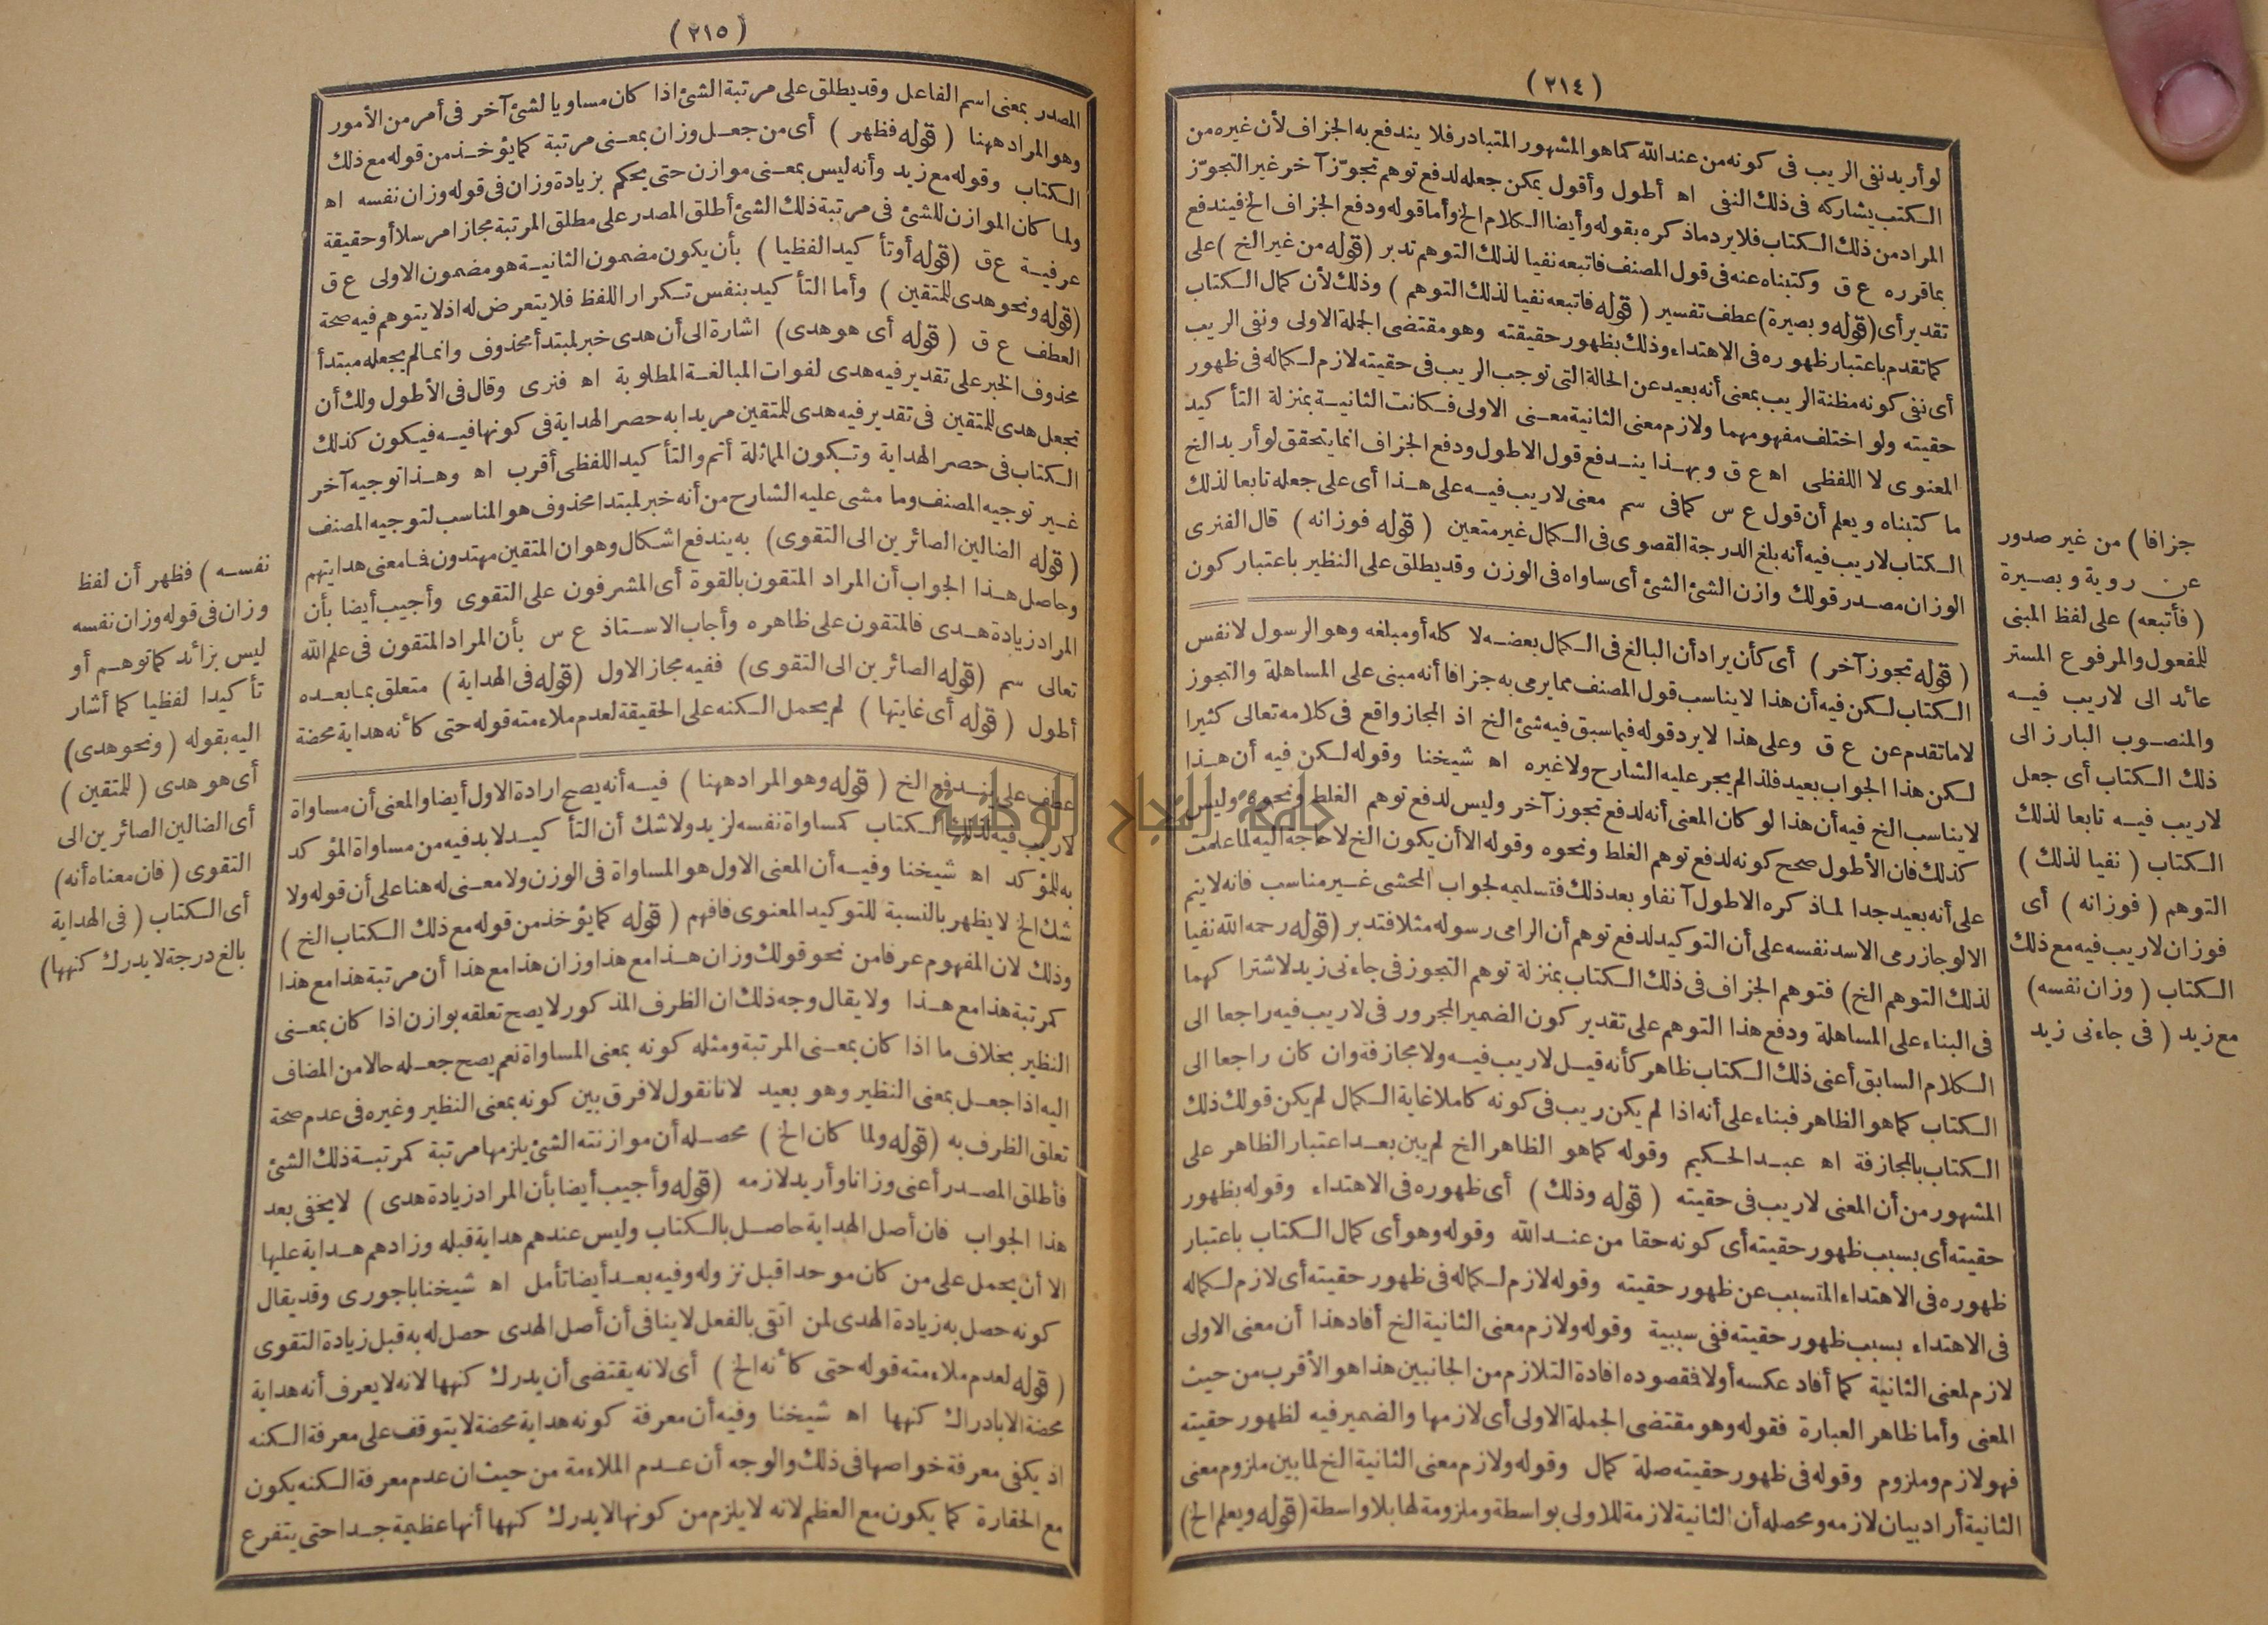 (٢١٤)
لو أريد نفى الريب فى كونه من عند الله كما هو المشهور المتبادر فلا يندفع به الجزاف لأن غيره من
الكتب يشاركه فى ذلك النفى اه أطول وأقول يمكن جعله لدفع توهم تجوّز آخر غير التجوّز
المراد من ذلك الكتاب فلا يرد ماذكره بقوله وأيضا الكلام الخ وأما قوله ودفع الجزاف الخ فيندفع
بما قرره ع ق وكتبناه عنه فى قول المصنف فاتبعه نفيا لذلك التوهم تدبر (قوله من غير الخ) على
تقدير أى (قوله وبصيرة) عطف تفسير (قوله فاتبعه نفيا لذلك التوهم) وذلك لأن كمال الكتاب
كما تقدم باعتبار ظهوره فى الاهتداء وذلك بظهور حقيقته وهو مقتضى الجملة الاولى ونفى الريب
أى نفى كونه مظنة الريب بمعنى أنه بعيد عن الحالة التى توجب الريب فى حقيته لازم لكماله فى ظهور
حقيته ولو اختلف مفهومهما ولازم معنى الثانية معنى الاولى فكانت الثانية بمنزلة التأكيد
المعنوى لا اللفظى اه ع ق وبهذا يندفع قول الاطول ودفع الجزاف انما يتحقق لو أريد الخ
ما كتبناه ويعلم أن قول ع س كما فى سم معنى لاريب فيه على هذا أى على جعله تابعا لذلك
الكتاب لاريب فيه أنه بلغ الدرجة القصوى فى الكمال غير متعين (قوله فوزانه) قال الفنرى
الوزان مصدر قولك وازن الشئ الشئ أى ساواه فى الوزن وقد يطلق على النظير باعتبار كون
(قوله تجوز آخر) أى كأن يراد أن البالغ فى الكمال بعضه لا كله أو مبلغه وهو الرسول لا نفس
الكتاب لكن فيه أن هذا لا يناسب قول المصنف مما يرمى به جزافا أنه مبنى على المساهلة والتجوز
لاما تقدم عن ع ق وعلى هذا لا يرد قوله فيما سبق فيه شئ الخ اذ المجاز واقع فى كلامه تعالى كثيرا
لكن هذا الجواب بعيد فلذا لم يجر عليه الشارح ولا غيره اه شيخنا وقوله لكن فيه أن هذا
لا يناسب الخ فيه أن هذا لو كان المعنى أنه لدفع تجوز آخر وليس لدفع توهم الغلط ونحوه وليس
كذلك فان الأطول صحح كونه لدفع توهم الغلط ونحوه وقوله الا أن يكون الخ لا حاجة اليه لما علمت
على أنه بعيد جدا لماذكره الاطول آنفا وبعد ذلك فتسليمه لجواب المحشى غير مناسب فانه لا يتم
الا لو جاز رمى الاسد نفسه على أن التوكيد لدفع توهم أن الرامى رسوله مثلا فتدبر (قوله رحمه الله نفيا
لذلك التوهم الخ) فتوهم الجزاف فى ذلك الكتاب بمنزلة توهم التجوز فى جاءنى زيد لاشتراكهما
فى البناء على المساهلة ودفع هذا التوهم على تقدير كون الضمير المجرور فى لاريب فيه راجعا الى
الكلام السابق أعنى ذلك الكتاب ظاهر كأنه قيل لاريب فيه ولا مجازفة وان كان راجعا الى
الكتاب كما هو الظاهر فبناء على أنه اذا لم يكن ريب فى كونه كاملا غاية الكمال لم يكن قولك ذلك
الكتاب بالمجازفة اه عبد الحكيم وقوله كما هو الظاهر الخ لم يبين بعد اعتبار الظاهر على
المشهور من أن المعنى لاريب فى حقيته (قوله وذلك) أى ظهوره فى الاهتداء وقوله بظهور
حقيته أى بسبب ظهور حقيته أى كونه حقا من عند الله وقوله وهو أى كمال الكتاب باعتبار
ظهوره فى الاهتداء المتسبب عن ظهور حقيته وقوله لازم لكماله فى ظهور حقيته أى لازم لكماله
فى الاهتداء بسبب ظهور حقيته ففى سببية وقوله ولازم معنى الثانية الخ أفاد هذا أن معنى الاولى
لازم لمعنى الثانية كما أفاد عكسه أولا فقصوده افادة التلازم من الجانبين هذا هو الأقرب من حيث
المعنى وأما ظاهر العبارة فقوله وهو مقتضى الجملة الاولى أى لازمها والضمير فيه لظهور حقيته
فهو لازم وملزوم وقوله فى ظهور حقيته صلة كمال وقوله ولازم معنى الثانية الخ لما بين ملزوم معنى
الثانية أراد بيان لازمه ومحصله أن الثانية لازمة للاولى بواسطة وملزومة لها بلا واسطة (قوله ويعلم الخ)
جزافا) من غير صدور
عن روية وبصيرة
(فأتبعه) على لفظ المبنى
للمفعول والمرفوع المستتر
عائد الى لاريب فيه
والمنصوب البارز الى
ذلك الكتاب أى جعل
لاريب فيه تابعا لذلك
الكتاب (نفيا لذلك)
التوهم (فوزانه) أى
فوزان لاريب فيه مع ذلك
الكتاب (وزان نفسه)
مع زيد (فى جاءنى زيد
(٢١٥)
المصدر بمعنى اسم الفاعل وقد يطلق على مرتبة الشئ اذا كان مساويا لشئ آخر فى أمر من الأمور
وهو المراد ههنا (قوله فظهر) أى من جعل وزان بمعنى مرتبة كما يؤخذ من قوله مع ذلك
الكتاب وقوله مع زيد وأنه ليس بمعنى موازن حتى يحكم بزيادة وزان فى قوله وزان نفسه اه
ولما كان الموازن للشئ فى مرتبة ذلك الشئ أطلق المصدر على مطلق المرتبة مجازا مرسلا أو حقيقة
عرفية ع ق (قوله أو تأكيدا لفظيا) بأن يكون مضمون الثانية هو مضمون الاولى ع ق
(قوله ونحو هدى للمتقين) وأما التأكيد بنفس تكرار اللفظ فلا يتعرض له اذ لا يتوهم فيه صحة
العطف ع ق (قوله أى هو هدى) اشارة الى أن هدى خبر لمبتدأ محذوف وانما لم يجعله مبتدأ
محذوف الخبر على تقدير فيه هدى لفوات المبالغة المطلوبة اه فنرى وقال فى الأطول ولك أن
تجعل هدى للمتقين فى تقدير فيه هدى للمتقين مريدا به حصر الهداية فى كونها فيه فيكون كذلك
الكتاب فى حصر الهداية وتكون المماثلة أتم والتأكيد اللفظى أقرب اه وهذا توجيه آخر
غير توجيه المصنف وما مشى عليه الشارح من أنه خبر لمبتدا محذوف هو المناسب لتوجيه المصنف
(قوله الضالين الصائرين الى التقوى) به يندفع اشكال وهو ان المتقين مهتدون فما معنى هدايتهم
وحاصل هذا الجواب أن المراد المتقون بالقوة أى المشرفون على التقوى وأجيب أيضا بأن
المراد زيادة هدى فالمتقون على ظاهره وأجاب الاستاذ ع س بأن المراد المتقون فى علم الله
تعالى سم (قوله الصائرين الى التقوى) ففيه مجاز الاول (قوله فى الهداية) متعلق بما بعده
أطول (قوله أى غايتها) لم يحمل الكنه على الحقيقة لعدم ملاءمته قوله حتى كأنه هداية محضة
عطف على يندفع الخ (قوله وهو المراد ههنا) فيه أنه يصح ارادة الاول أيضا والمعنى أن مساواة
لاريب فيه لذلك الكتاب كمساواة نفسه لزيد ولا شك أن التأكيد لابد فيه من مساواة المؤكد
به للمؤكد اه شيخنا وفيه أن المعنى الاول هو المساواة فى الوزن ولا معنى له هنا على أن قوله ولا
شك الخ لا يظهر بالنسبة للتوكيد المعنوى فافهم (قوله كما يؤخذ من قوله مع ذلك الكتاب الخ)
وذلك لان المفهوم عرفا من نحو قولك وزان هذا مع هذا وزان هذا مع هذا أن مرتبة هذا مع هذا
كمرتبة هذا مع هذا ولا يقال وجه ذلك ان الظرف المذكور لا يصح تعلقه بوازن اذا كان بمعنى
النظير بخلاف ما اذا كان بمعنى المرتبة ومثله كونه بمعنى المساواة نعم يصح جعله حالا من المضاف
اليه اذا جعل بمعنى النظير وهو بعيد لانا نقول لا فرق بين كونه بمعنى النظير وغيره فى عدم صحة
تعلق الظرف به (قوله ولما كان الخ) محصله أن موازنته الشئ يلزمها مرتبة كمرتبة ذلك الشئ
فأطلق المصدر أعنى وزانا وأريد لازمه (قوله وأجيب أيضا بأن المراد زيادة هدى) لا يخفى بعد
هذا الجواب فان أصل الهداية حاصل بالكتاب وليس عندهم هداية قبله وزادهم هداية عليها
الا أن يحمل على من كان موحدا قبل نزوله وفيه بعد أيضا تأمل اه شيخنا باجورى وقد يقال
كونه حصل به زيادة الهدى لمن اتقى بالفعل لا ينافى أن أصل الهدى حصل له به قبل زيادة التقوى
(قوله لعدم ملاءمته قوله حتى كأنه الخ) أى لانه يقتضى أن يدرك كنهها لانه لا يعرف أنه هداية
محضة الا بادراك كنهها اه شيخنا وفيه أن معرفة كونه هداية محضة لا يتوقف على معرفة الكنه
اذ يكفى معرفة خواصها فى ذلك والوجه أن عدم الملاءمة من حيث ان عدم معرفة الكنه يكون
مع الحقارة كما يكون مع العظم لانه لا يلزم من كونها لا يدرك كنهها أنها عظيمة جدا حتى يتفرع
نفسه) فظهر أن لفظ
وزان فى قوله وزان نفسه
ليس بزائد كما توهم أو
تأكيدا لفظيا كما أشار
اليه بقوله (ونحو هدى)
أى هو هدى (للمتقين)
أى الضالين الصائرين الى
التقوى (فان معناه أنه)
أى الكتاب (فى الهداية
بالغ درجة لا يدرك كنهها)
جامعة النجاح الوطنية